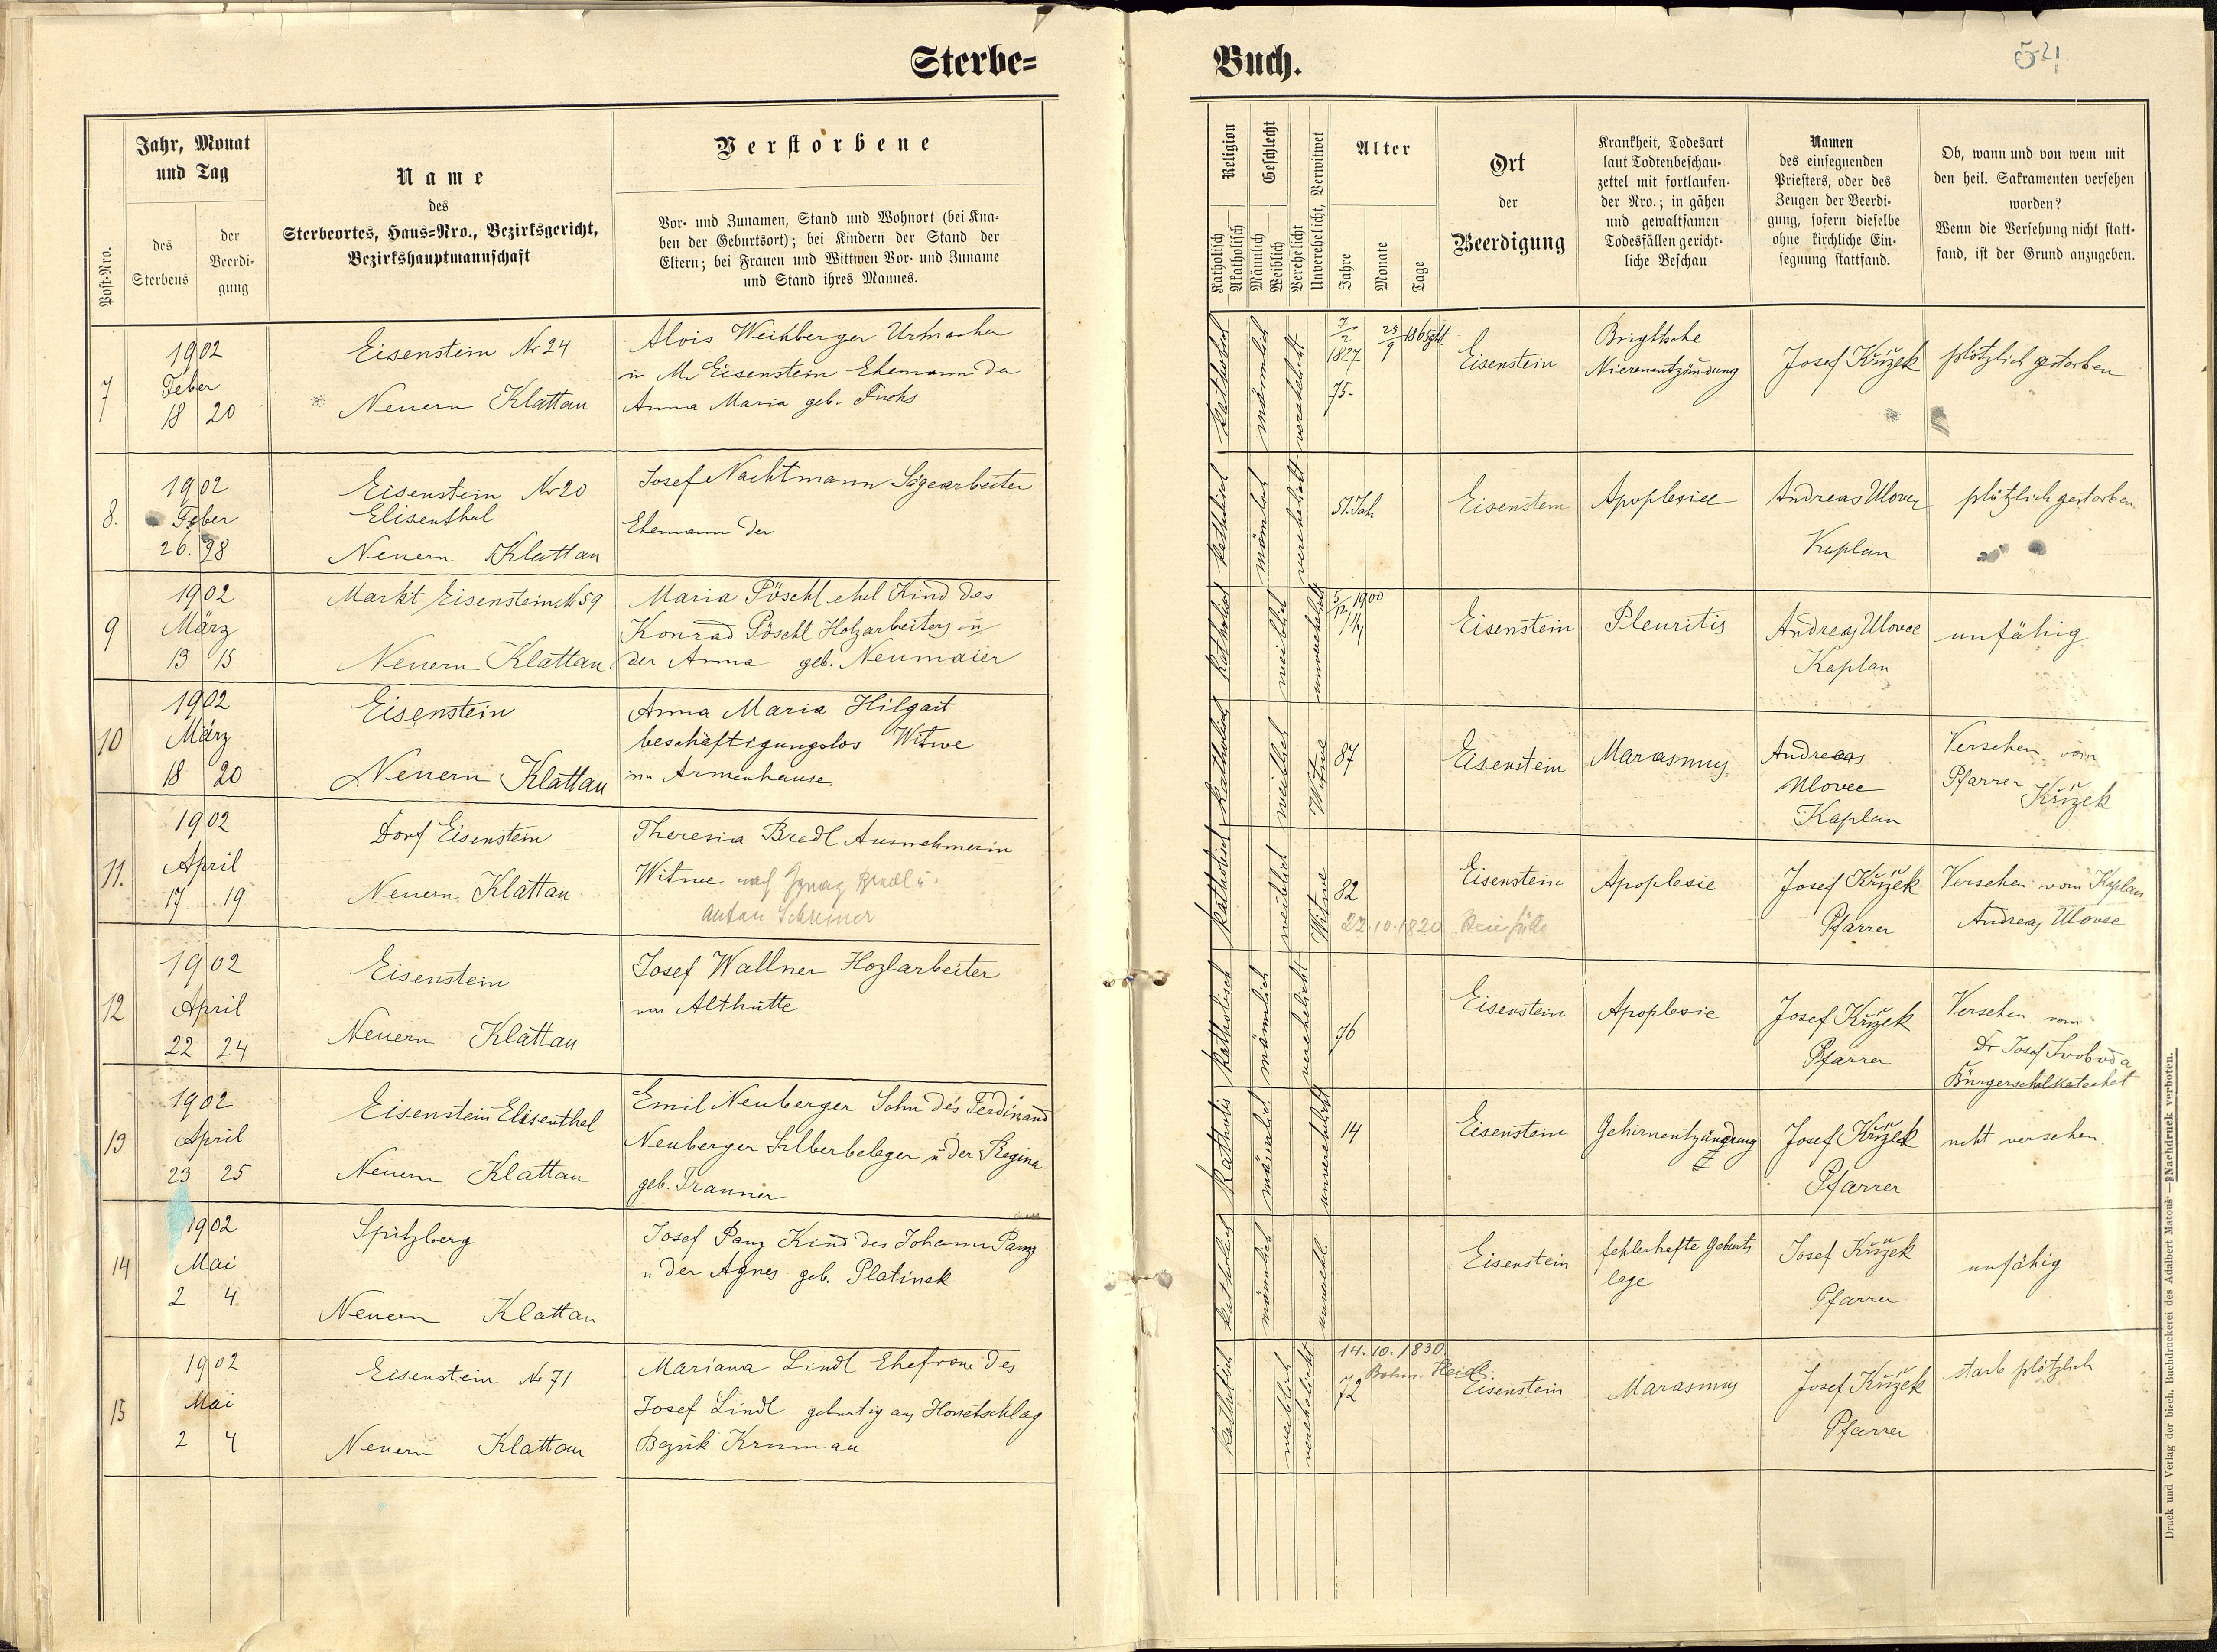 Sterbe-
Buch.
521
Post-Nro.
Jahr, Monat
und Tag
des
Sterbens
der
Beerdi-
gung
Name
des
Sterbeortes, Haus-Nro., Bezirksgericht,
Bezirkshauptmannschaft
Verstorbene
Vor- und Zunamen, Stand und Wohnort (bei Kna-
ben der Geburtsort); bei Kindern der Stand der
Eltern; bei Frauen und Wittwen Vor- und Zuname
und Stand ihres Mannes.
Religion
Katholisch
Akatholisch
Geschlecht
Männlich
Weiblich
Verehelicht
Unverehelicht, Verwitwet
Alter
Jahre
Monate
Tage
Ort
der
Beerdigung
Krankheit, Todesart
laut Todtenbeschau-
zettel mit fortlaufen-
der Nro.; in gähen
und gewaltsamen
Todesfällen gericht-
liche Beschau
Namen
des einsegnenden
Priesters, oder des
Zeugen der Beerdi-
gung, sofern dieselbe
ohne kirchliche Ein-
segnung stattfand.
Ob, wann und von wem mit
den heil. Sakramenten versehen
worden?
Wenn die Versehung nicht statt-
fand, ist der Grund anzugeben.
7
1902
Feber
18 20
Eisenstein Nr 24
Neuern Klattau
Alois Weinberger Urmacher
in M. Eisenstein Ehemann der
Anna Maria geb. Fuchs
katholisch
männlich
verehelicht
7/2 1827
25/9 1865
75.
Eisenstein
Brightsche
Nierenentzündung
Josef Křížek
plötzlich gestorben
8.
1902
Feber
26. 28
Eisenstein Nr 20
Elisenthal
Neuern Klattau
Josef Nachtmann Sägearbeiter
Ehemann der
katholisch
männlich
verehelicht
51. Jah
Eisenstein
Apoplexie
Andreas Ulovec
Kaplan
plötzlich gestorben.
9
1902
März
13 15
Markt Eisenstein N 59
Neuern Klattau
Maria Pöschl ehel Kind des
Konrad Pöschl Holzarbeiters u
der Anna geb. Neumaier
katholisch
weiblich
unverehelicht
5/12 1900
1 1/4
Eisenstein
Pleuritis
Andreas Ulovec
Kaplan
unfähig
10
1902
März
18 20
Eisenstein
Neuern Klattau
Anna Maria Hilgart
beschäftigungslos Witwe
im Armenhause.
katholisch
weiblich
Witwe
87
Eisenstein
Marasmus
Andreas
Ulovec
Kaplan
Versehen vom
Pfarrer
Křížek
11.
1902
April
17 19
Dorf Eisenstein
Neuern Klattau
Theresia Bredl Ausnehmerin
Witwe nach Ignaz Bredl u.
Anton Schreiner
katholisch
weiblich
Witwe
82
22.10.1820
Eisenstein
Apoplexie
Josef Křížek
Pfarrer
Versehen vom Kaplan
Andreas Ulovec
12
1902
April
22 24
Eisenstein
Neuern Klattau
Josef Wallner Hozlarbeiter
von Althütte
katholisch
männlich
verehelicht
76
Eisenstein
Apoplexie
Josef Křížek
Pfarrer
Versehen vom
Dr Josef Svoboda
Bürgerschulkatechet
13
1902
April
23 25
Eisenstein Elisenthal
Neuern Klattau
Emil Neuberger Sohn des Ferdinand
Neuberger Silberbeleger u der Regina
geb. Tranner
katholis
männlich
unverehelicht
14
Eisenstein
Gehirnentzündung
Josef Křížek
Pfarrer
nicht versehen.
14
1902
Mai
2 4
Spitzberg
Neuern Klattau
Josef Panz Kind des Johann Panz
u der Agnes geb. Platinek
katholisch
männlich
unverehl.
Eisenstein
fehlerhafte Geburts
lage
Josef Křížek
Pfarrer
unfähig
15
1902
Mai
2 4
Eisenstein Nr 71
Neuern Klattau
Mariana Lindl Ehefrau des
Josef Lindl gebürtig aus Honetschlag
Bezirk Krumau
katholisch
weiblich
verehelicht
14.10.1830
Böhm. Heidl.
72
Eisenstein
Marasmus
Josef Křížek
Pfarrer
starb plötzlich
Druck und Verlag der bisch. Buchdruckerei des Adalbert Matouš — Nachdruck verboten.